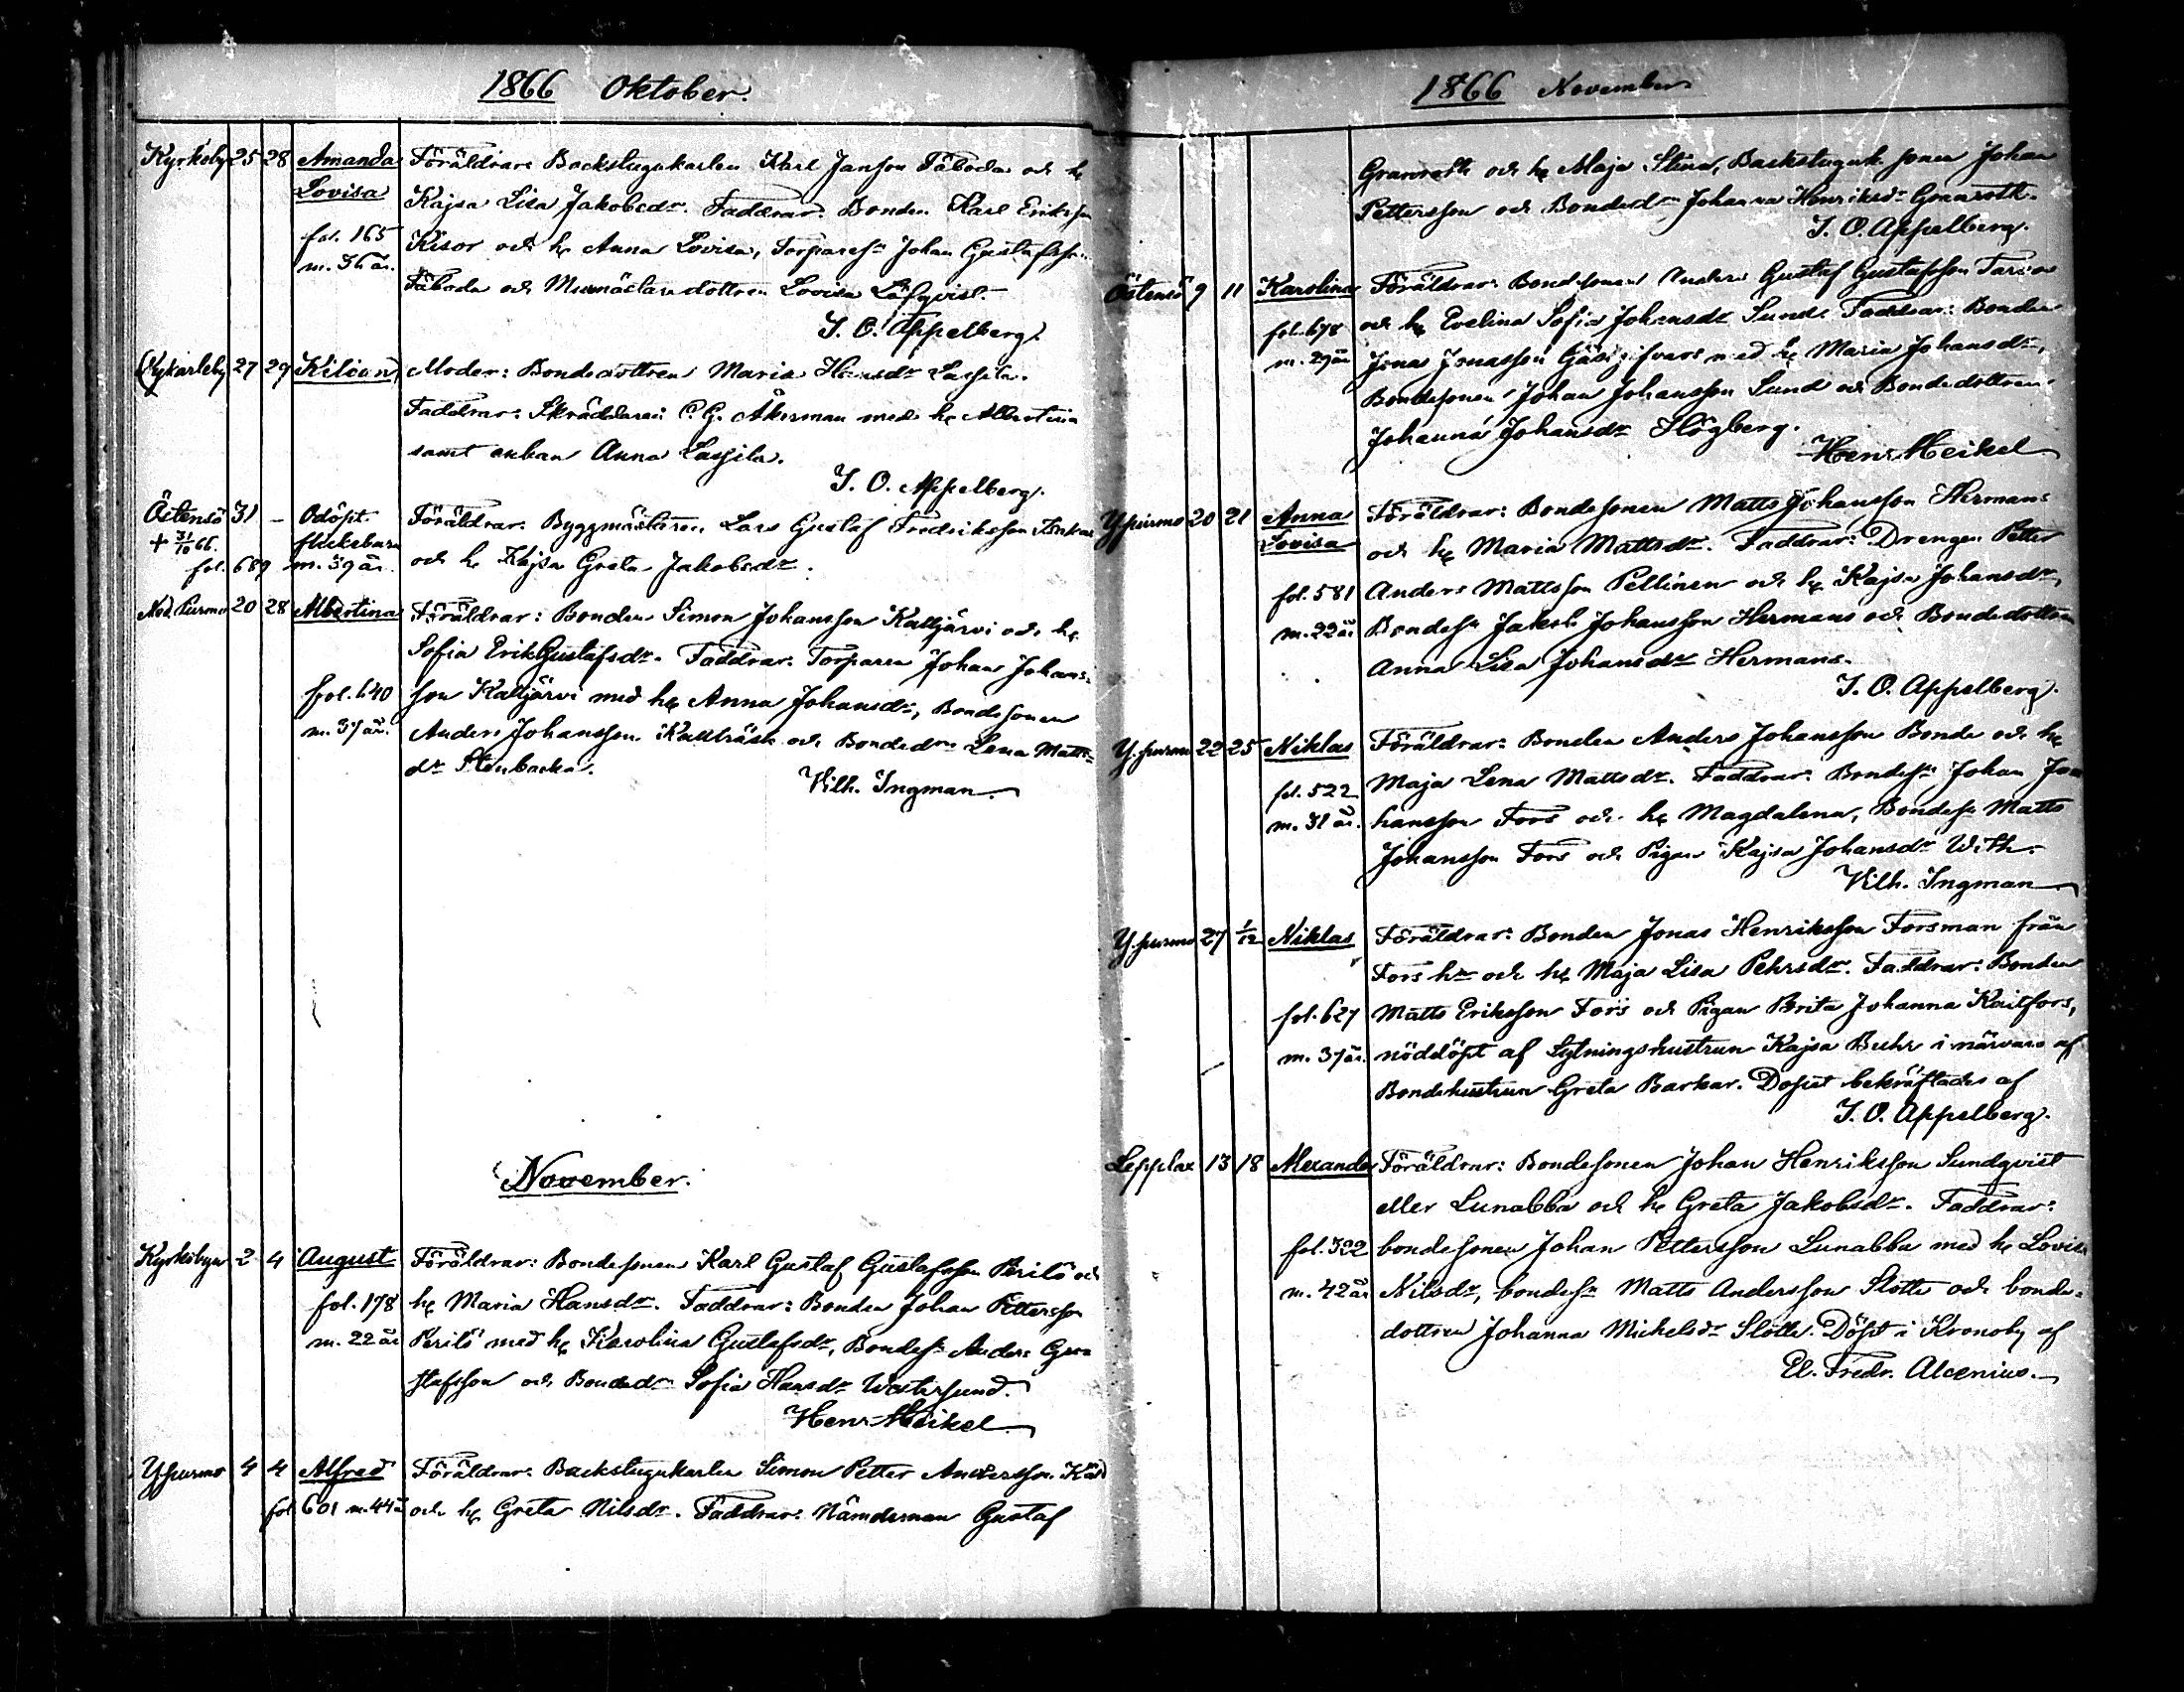 1866 Oktober.
Kyrkoby 25 28 Amanda Föräldrar: Backstugukarlen Karl Janson Fäboda och h
Lovisa Kajsa Lisa Jakobsdr. Faddrar: Bonden Karl Eriksson
fol. 165 Kisor och h Anna Lovisa, Torpareson Johan Gustafsson
m. 36 år. Fäboda och dottren Lovisa Löfqvist.
I. O. Appelberg.
Nykarleby 27 29 Kilian, Moder: Bondedottren Maria Hansdr Lassila.
Faddrar: Skräddaren C. G. Åkerman med h Albertina
samt enkan Anna Lassila.
I. O. Appelberg.
Östensö 31 – Odöpt Föräldrar: Byggmästaren Lars Gustaf Fredriksson
+ 31/10 66. flickebarn och h Kajsa Greta Jakobsdr.
fol. 689 m. 39 år.
Ned. Purmo 20 28 Albertina Föräldrar: Bonden Simon Johansson Kalljärvi och h
Sofia ErikGustafsdr. Faddrar: Torparen Johan Johans-
fol. 640 son Kalljärvi med h Anna Johansdr, Bondesonen
m. 37 år. Anders Johansson Kallträsk och Bondedn Lena Matts-
dr Stenbacka.
Vilh. Ingman.
November.
Kyrkobyn 2 4 August Föräldrar: Bondesonen Karl Gustaf Gustafsson Perilö och
fol. 178 h Maria Hansdr. Faddrar: Bonden Johan Pettersson
m. 22 år Perilö med h Karolina Gustafsdr, Bondesn Anders Gu-
stafsson och Bondedn Sofia Hansdr Westersund.
Henr. Heikel
Y. purmo 4 4 Alfred Föräldrar: Backstugukarlen Simon Petter Andersson
fol. 601 m. 44 å och h Greta Nilsdr. Faddrar: Nämdeman Gustaf
1866 November
Granroth och h Maja Stina, Backstuguk. sonen Johan
Pettersson och Bonded Johanna Henriksdr Granroth.
I. O. Appelberg.
Östensö 9 11 Karolina Föräldrar: Bondesonen Anders Gustaf Gustafsson
fol. 678 och h Evelina Sofia Johansdr Sund. Faddrar: Bonden
m. 29 år Jonas Jonasson Gäsgifvars med h Maria Johansdr,
Bondesonen Johan Johansson Sund och Bondedottren
Johanna Johansdr Högberg.
Henr. Heikel
Y. purmo 20 21 Anna Föräldrar: Bondesonen Matts Johansson Hermans
Lovisa och h Maria Mattsdr. Faddrar: Drengen Petter
fol. 581 Anders Mattsson Pellinen och h Kajsa Johansdr,
m. 22 år Bondesn Jakob Johansson Hermans och Bondedottren
Anna Lisa Johansdr Hermans.
I. O. Appelberg.
Y. purmo 22 25 Niklas Föräldrar: Bonden Anders Johansson Bonde och h
fol. 522 Maja Lena Mattsdr. Faddrar: Bondesn Johan Jo-
m. 31 år. hansson Fors och h Magdalena, Bondesn Matts
Johansson Fors och Pigan Kajsa Johansdr With.
Vilh. Ingman
Y. purmo 27 1/12 Niklas Föräldrar: Bonden Jonas Henriksson Forsman från
Fors hn och h Maja Lisa Pehrsdr. Faddrar: Bonden
fol. 627 Matts Eriksson Fors och Pigan Brita Johanna Kaitfors,
m. 37 år. nöddöpt af Sytningshustrun Kajsa Buhr i närvaro af
Bondehustrun Greta Barkar. Dopet bekräftades af
I. O. Appelberg.
Lepplax 13 18 Alexander Föräldrar: Bondesonen Johan Henriksson Sundqvist
eller Lunabba och h Greta Jakobsdr. Faddrar:
fol. 322 bondesonen Johan Pettersson Lunabba med h Lovisa
m. 42 år Nilsdr, bondesn Matts Andersson Slotte och bonde-
dottren Johanna Michelsdr Slotte. Döpt i Kronoby af
El. Fredr. Alcenius.